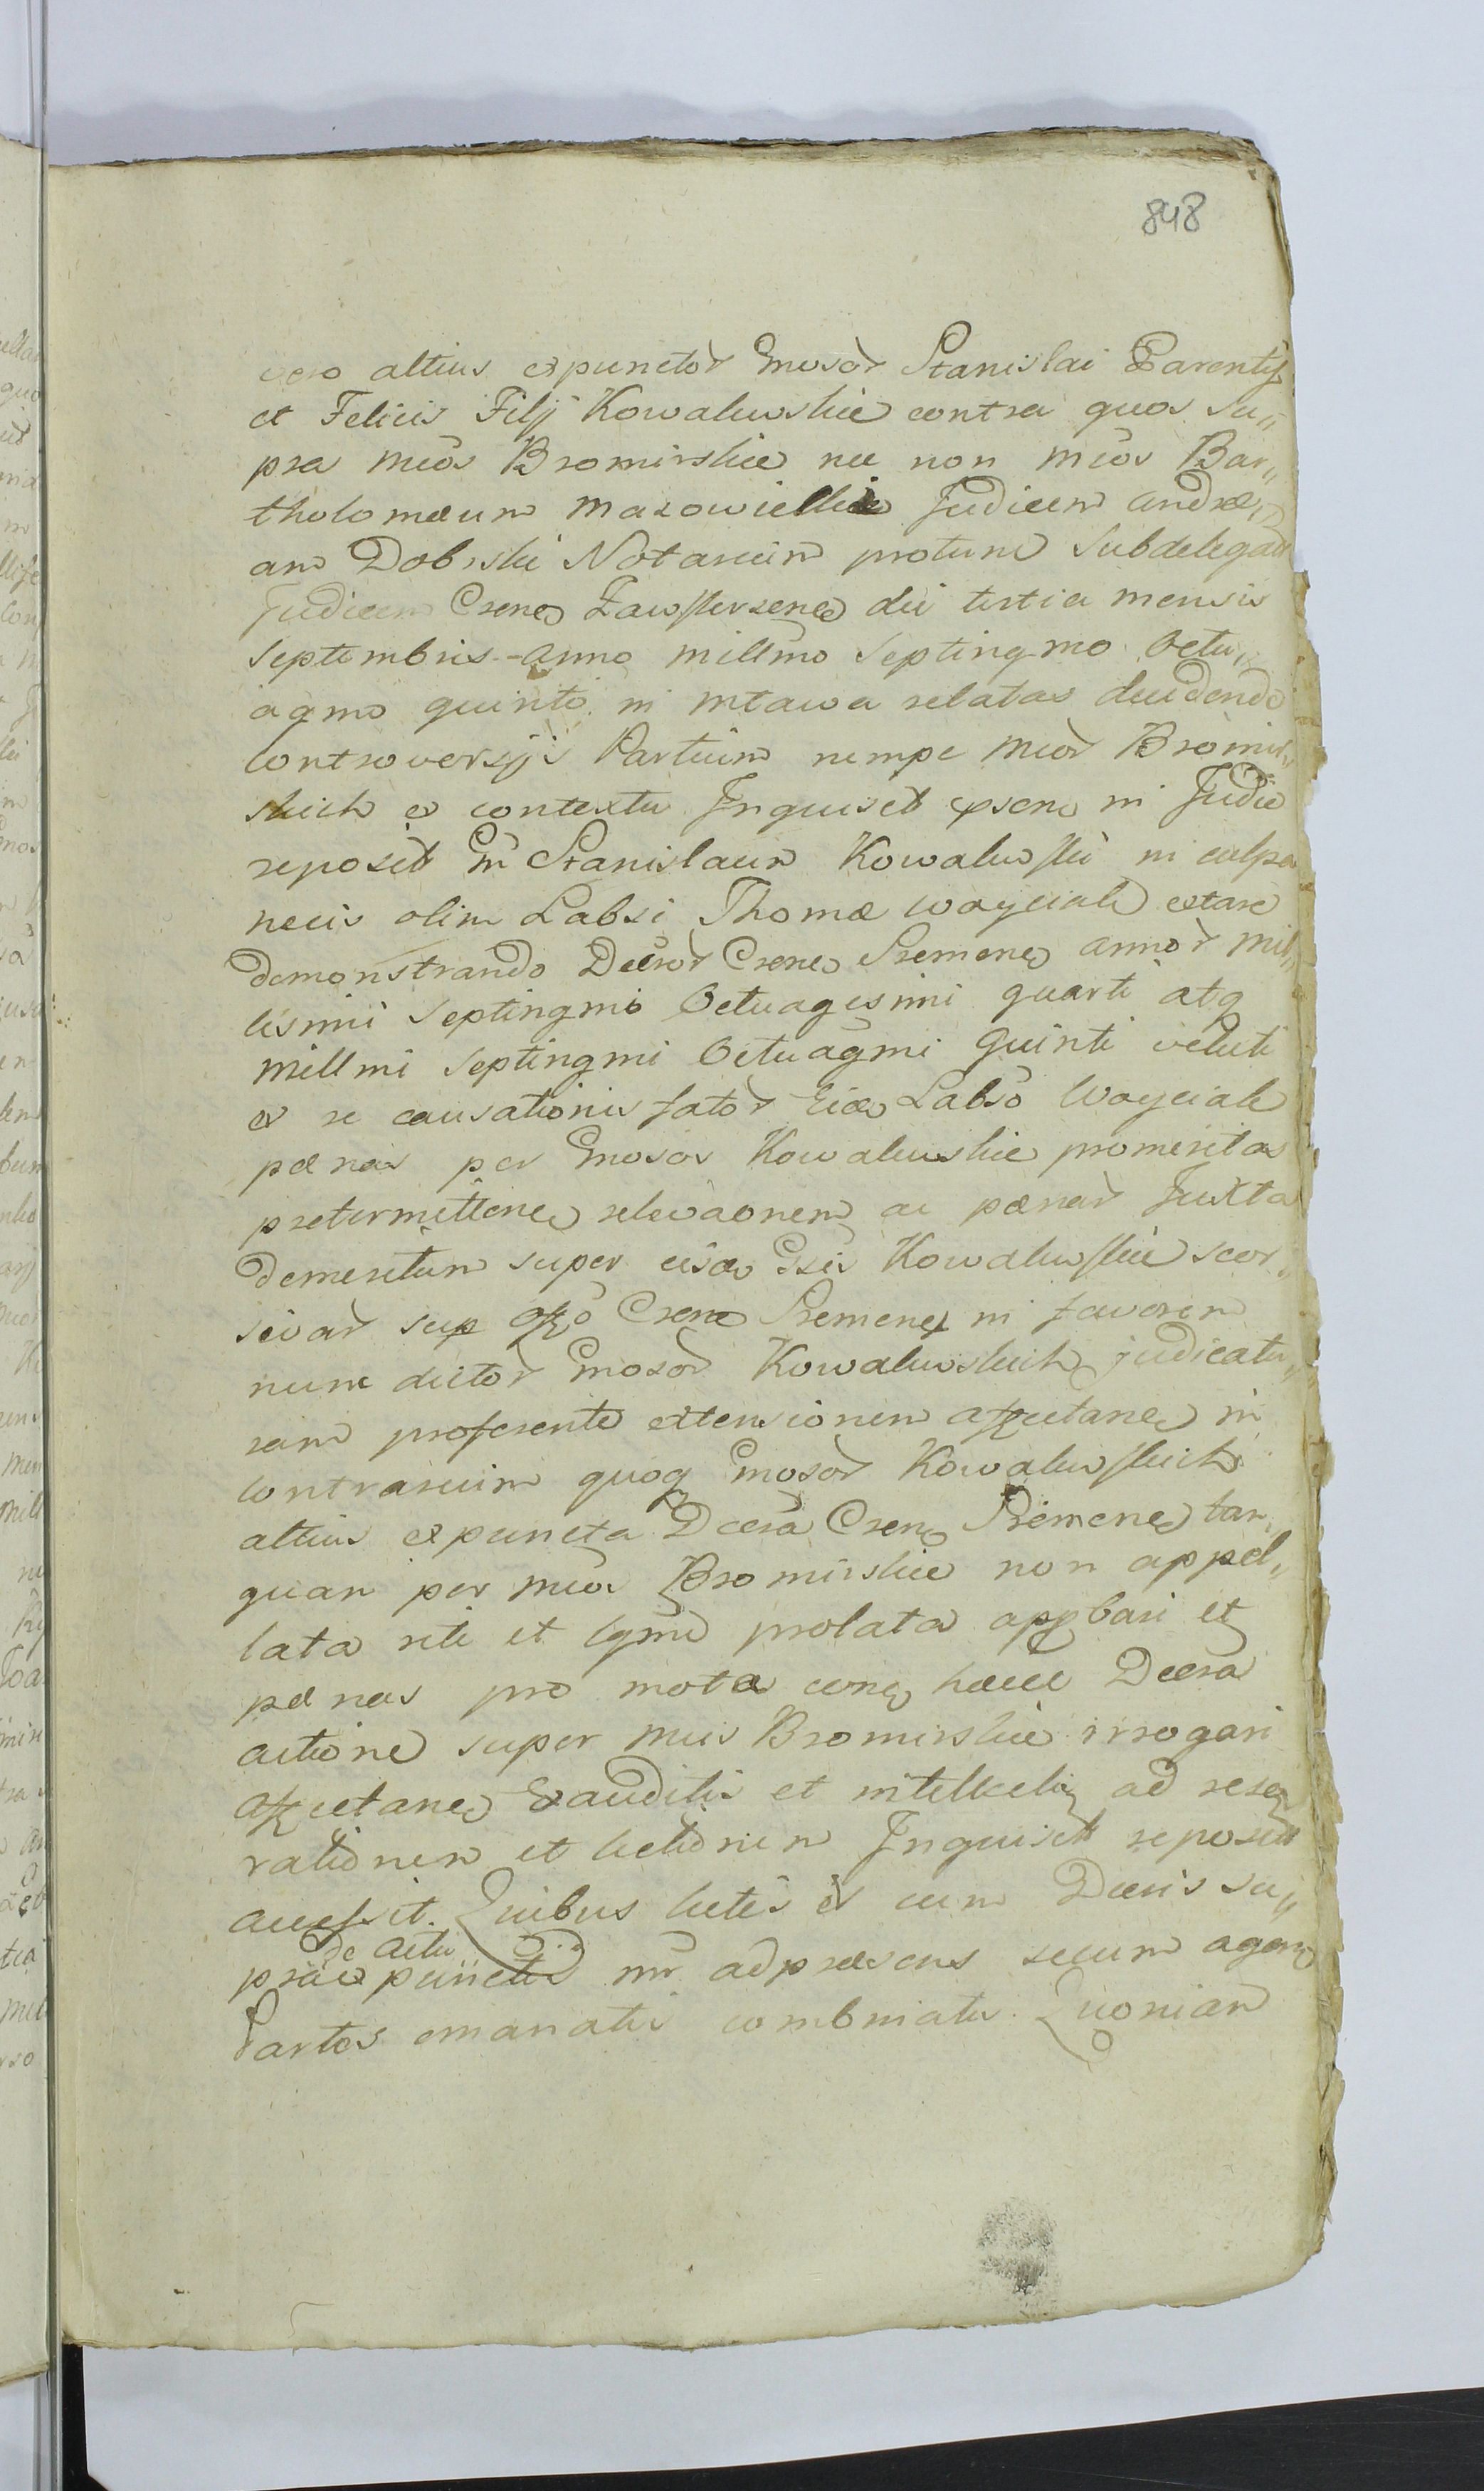 848
vero altius expunctor Gnosor Stanislai Parentis
et Felicis Filij Kowalewskie contra quos Su„
pra Mcos Bromirskie nec non Mcos Bar„
tholomæum Mazowiecki Judicem Andræ„
am Dobrski Notarium protunc Subdelegatt
Judicem Csene Zawskrzene die tertia mensis
Septembris Anno millmo Septingmo Octu„
agmo quinto in Mlawa relatas decidendo
Controversijs Partium nempe Mcor Bromir„
skich ex contextu Inquisit in Judic
reposit Gn Stanislaum Kowalewski in culpa
necis olim Labsi Thomæ Woyciak extare
demonstrando Decror Csene Sremene annor Mil„
lesimi Septingmi Octuagesimi quarti atq
Millmi Septingmi Octuagmi Quinti veluti
ex re causationis fator Labso Woyciak
pænas per Gnosos Kowalewskie promeritas
pretermittene relevaonem ac pænar Juxta
demeritum super eisd Gsis Kowalewskie scor„
sivar sup Csene Sremene in favorem
nunc dictor Gnosor Kowalewskich judicatu„
ram proferente extensionem affectane in
Contrarium quoq Gnosor Kowalewskich
altius expuncta Decra Csene Sremene tan„
quam per Mcos Bromirskie non appel„
lata rite et lgme prolata appbari et
pænas pro mota conq hæcce Decra
actione super Mcis Bromirskie irrogari
affectane Exauditis et intellectis ad rese„
rationem et lectionem Inquisit reposit
accessit. Quibus lectis et cum Decris su„
de Actu
praexpunctis inr adpræsens secum agen
Partes emanatis combinatis. Quoniam